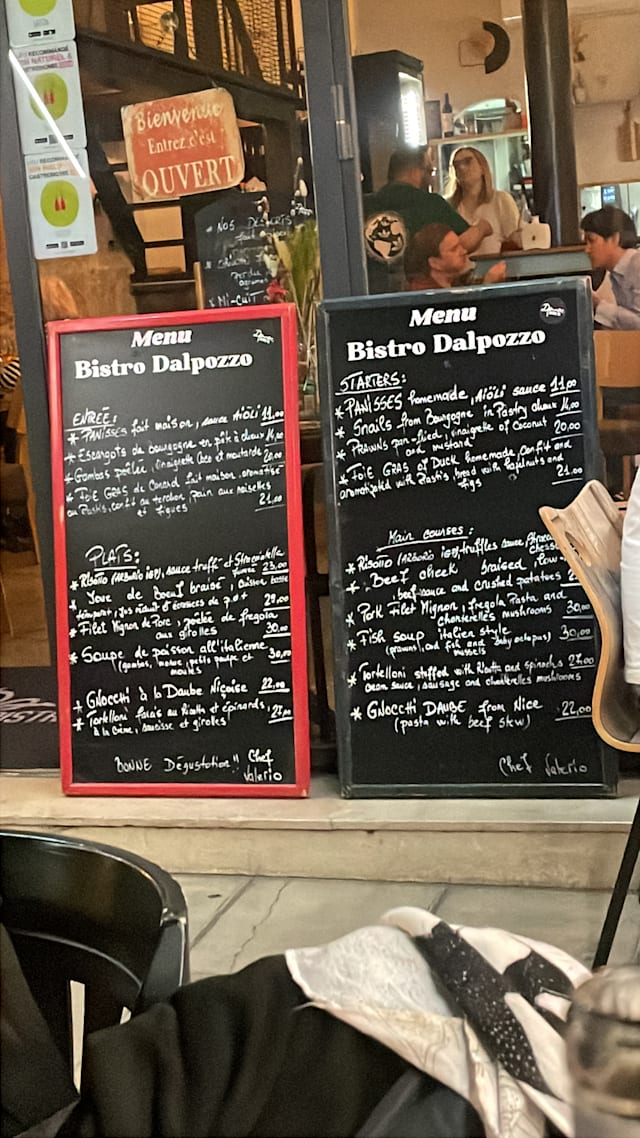 Bienvenue
Entrez c'est
OUVERT
NOS DESSERTS
MI-CUIT
Menu
Bistro Dalpozzo
ENTRÉE:
* PANISSES fait maison, sauce Aïoli 11,00
* Escargots de bourgogne en pâte à choux 14,00
* Gambas poêlée, vinaigrette Coco et moutarde 20,00
* FOIE GRAS de Canard fait maison, aromatisé
au Pastis, confit au torchon, pain aux noisettes
et figues 21,00
PLATS:
* Risotto (ARBORIO IGP), sauce truffe et Stracciatella
fumée 23,00
* Joue de boeuf braisé, cuisson basse
température, jus réduit et écrasées de p.d.t 29,00
* Filet Mignon de Porc, poêlée de fregola
aux girolles 30,00
* Soupe de poisson all'italienne 30,00
moules
* GNOCCHI à la Daube Niçoise 22,00
* Tortelloni farcis au Ricotta et épinards, 27,00
à la crème, saucisse et girolles
BONNE Dégustation!! Chef
Valerio
Menu
Bistro Dalpozzo
STARTERS:
* PANISSES homemade, Aïoli sauce 11,00
* Snails from Bourgogne in Pastry choux 14,00
* PRAWNS pan-fried, vinaigrette of coconut 20,00
and mustard
* FOIE GRAS of DUCK homemade, confit and
aromatizated with Pastis, bread with hazelnuts and
figs 21,00
Main courses:
* Risotto (ARBORIO IGP), truffles sauce,
cheese
* Beef cheek braised low-
beef sauce and crushed potatoes
* Pork Filet Mignon, fregola Pasta and
chanterelles mushrooms 30,00
* Fish soup italien style 30,00
(prawns, and fish and baby octopus)
mussels
* Tortelloni stuffed with Ricotta and spinachs 27,00
cream sauce, sausage and chanterelles mushrooms
* GNOCCHI DAUBE from Nice 22,00
(pasta with beef stew)
Chef Valerio